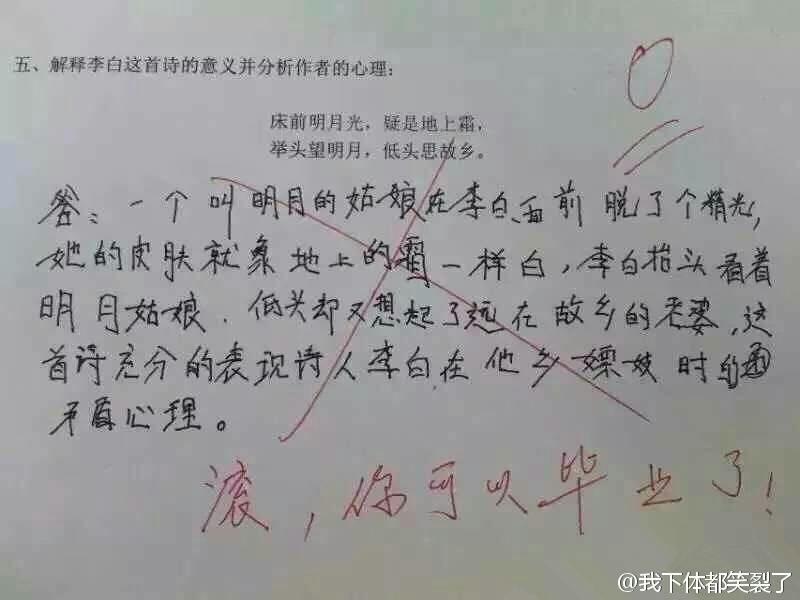 五、解释李白这首诗的意义并分析作者的心理：
0
床前明月光，疑是地上霜，
举头望明月，低头思故乡。
答：一个叫明月的姑娘在李白面前脱了个精光，
她的皮肤就象地上的霜一样白，李白抬头看着
明月姑娘．低头却又想起了远在故乡的老婆，这
首诗充分的表现诗人李白在他乡嫖妓时的
矛盾心理。
滚，你可以毕业了！
@我下体都笑裂了